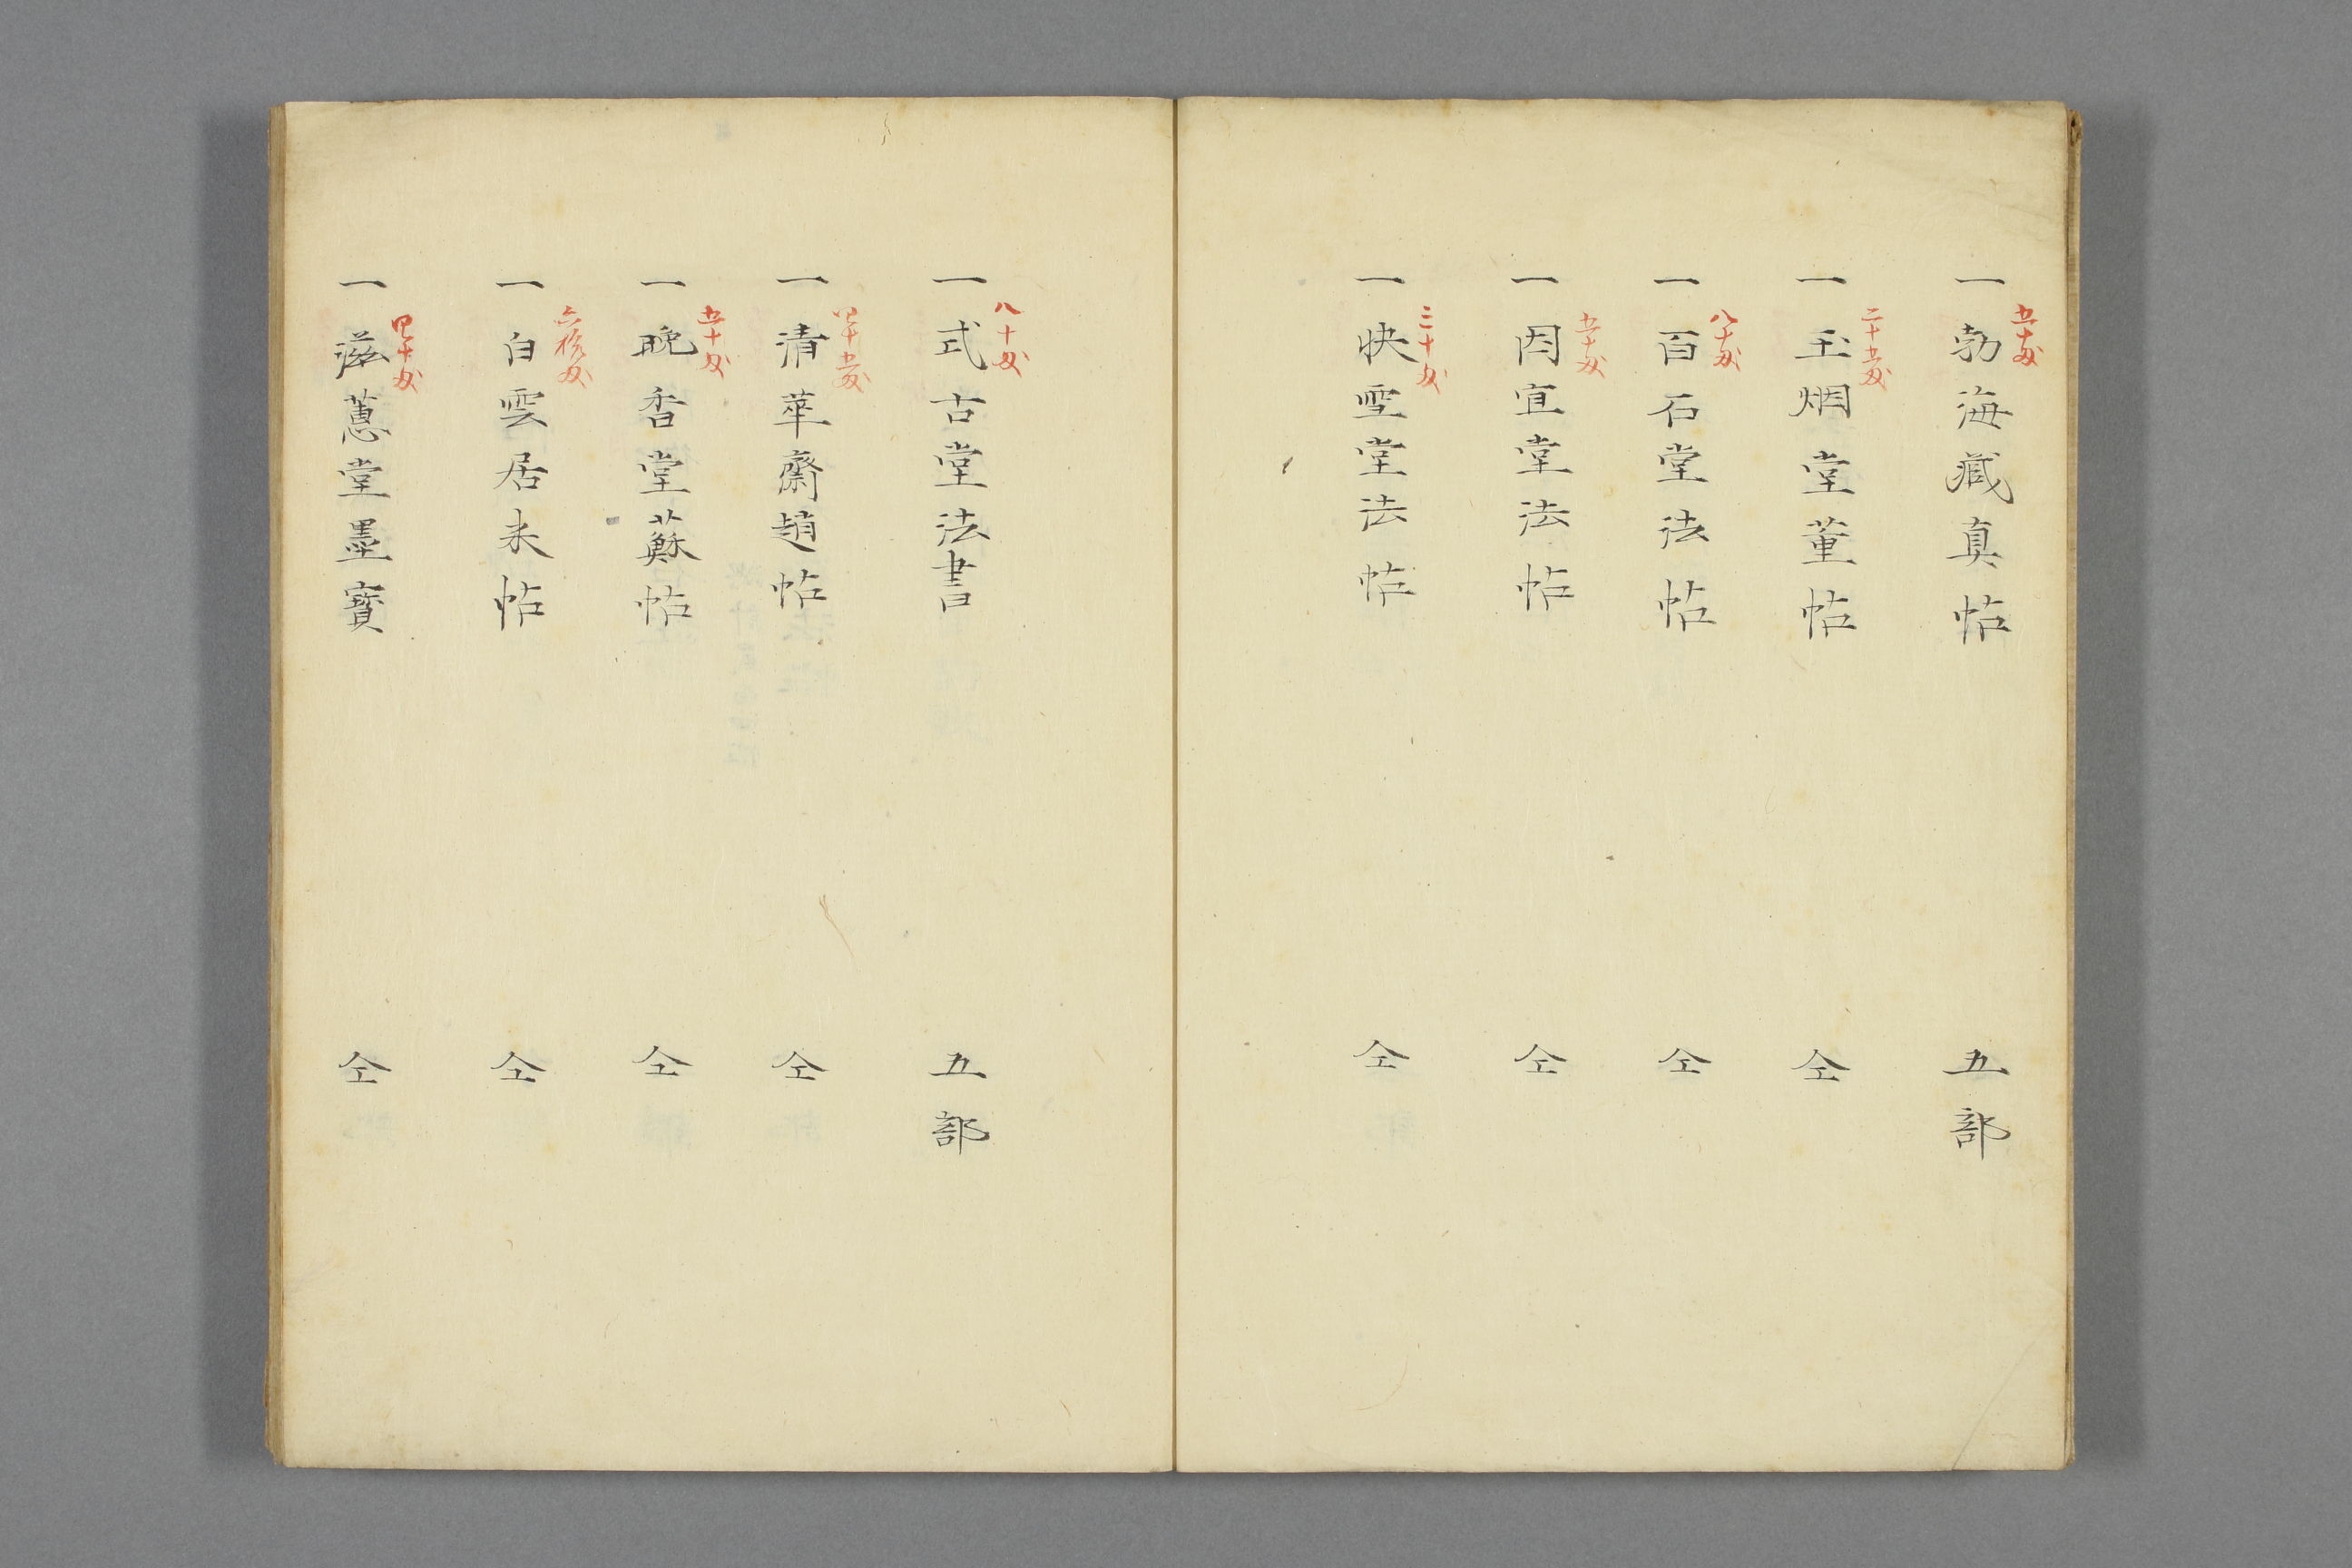 一勃海藏真帖 五部
五十匁
一玉烟堂董帖 仝
二十五匁
一百石堂法帖 仝
八十匁
一因宜堂法帖 仝
五十匁
一快雪堂法帖 仝
三十匁
一式古堂法書 五部
八十匁
一清華齋趙帖 仝
四十五匁
一晩香堂蘇帖 仝
五十匁
一白雲居米帖 仝
六拾匁
一滋蕙堂墨寶 仝
四十匁